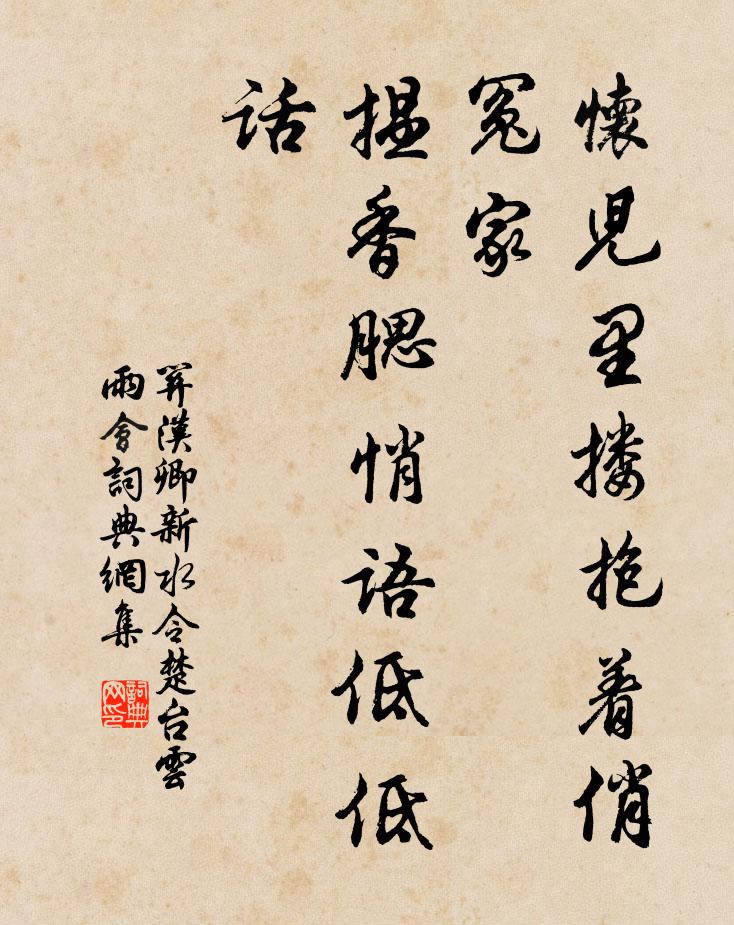 懷兒里摟抱着俏
冤家
揾香腮悄語低低
話
關漢卿新水令楚台雲
雨會詞典網集
詞典
网印